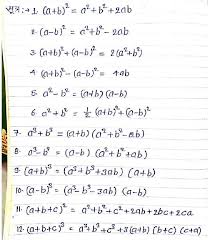 सूत्र :→ 1. (a+b)² = a²+b²+2ab
2. (a-b)² = a²+b²-2ab
3 (a+b)²+(a-b)² = 2(a²+b²)
4 (a+b)²-(a-b)² = 4ab
5 a²-b² = (a+b)(a-b)
6 a²+b² = ½(a+b)²+(a-b)²
7. a³+b³ = (a+b)(a²+b²-ab)
8. a³-b³ = (a-b)(a²+b²+ab)
9. (a+b)³ = (a³+b³+3ab)(a+b)
10. (a-b)³ = (a³-b³-3ab)(a-b)
11. (a+b+c)² = a²+b²+c²+2ab+2bc+2ca
12. (a+b+c)³ = a³+b³+c³+3(a+b)(b+c)(c+a)